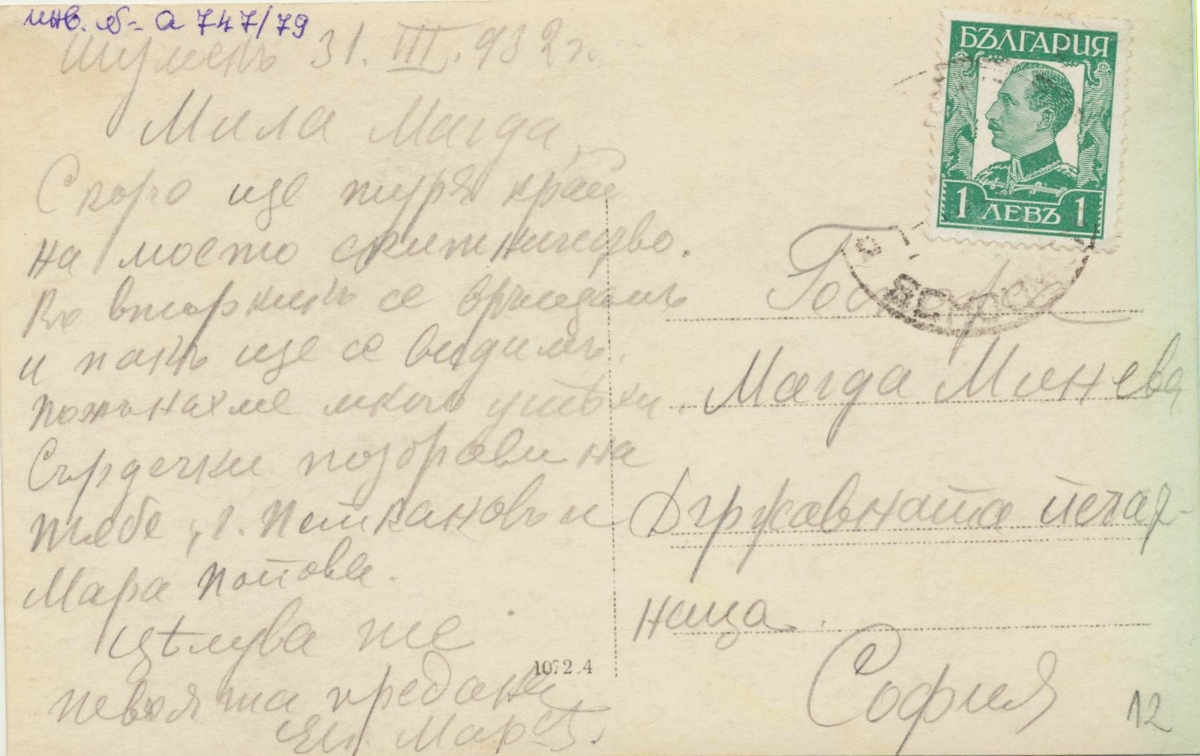 инв. № - а 747/79
Шуменъ 31. III. 932 г.
Мила Магда,
Скоро ще туря край
на моето скитничество.
Въ вторникъ се връщамъ
и пакъ ще се видимъ.
Пожънахме много успѣхи.
Сърдечни поздрави на
тебе, г. Петкановъ и
Мара Попова.
Цѣлува те
предана
Ел.
1072 4
БЪЛГАРИЯ
1 ЛЕВЪ 1
Госпожа
Магда Минева
Държавната печат-
ница.
София
12